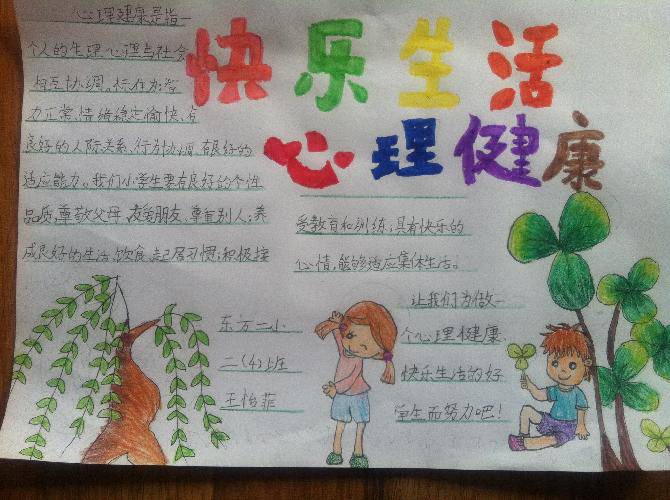 快乐生活
心理健康
心理健康是指一
个人的生理心理与社会
相互协调。标在为:智
力正常、情绪稳定愉快、有
良好的人际关系、行为协调、有良好的
适应能力。我们小学生要有良好的个性
品质,尊敬父母,友爱朋友、尊重别人;养
成良好的生活、饮食、起居习惯;积极接
受教育和训练;具有快乐的
心情,能够适应集体生活。
让我们为做一
个心理健康、
快乐生活的好
学生而努力吧!
东方二小
二(4)班
王怡菲